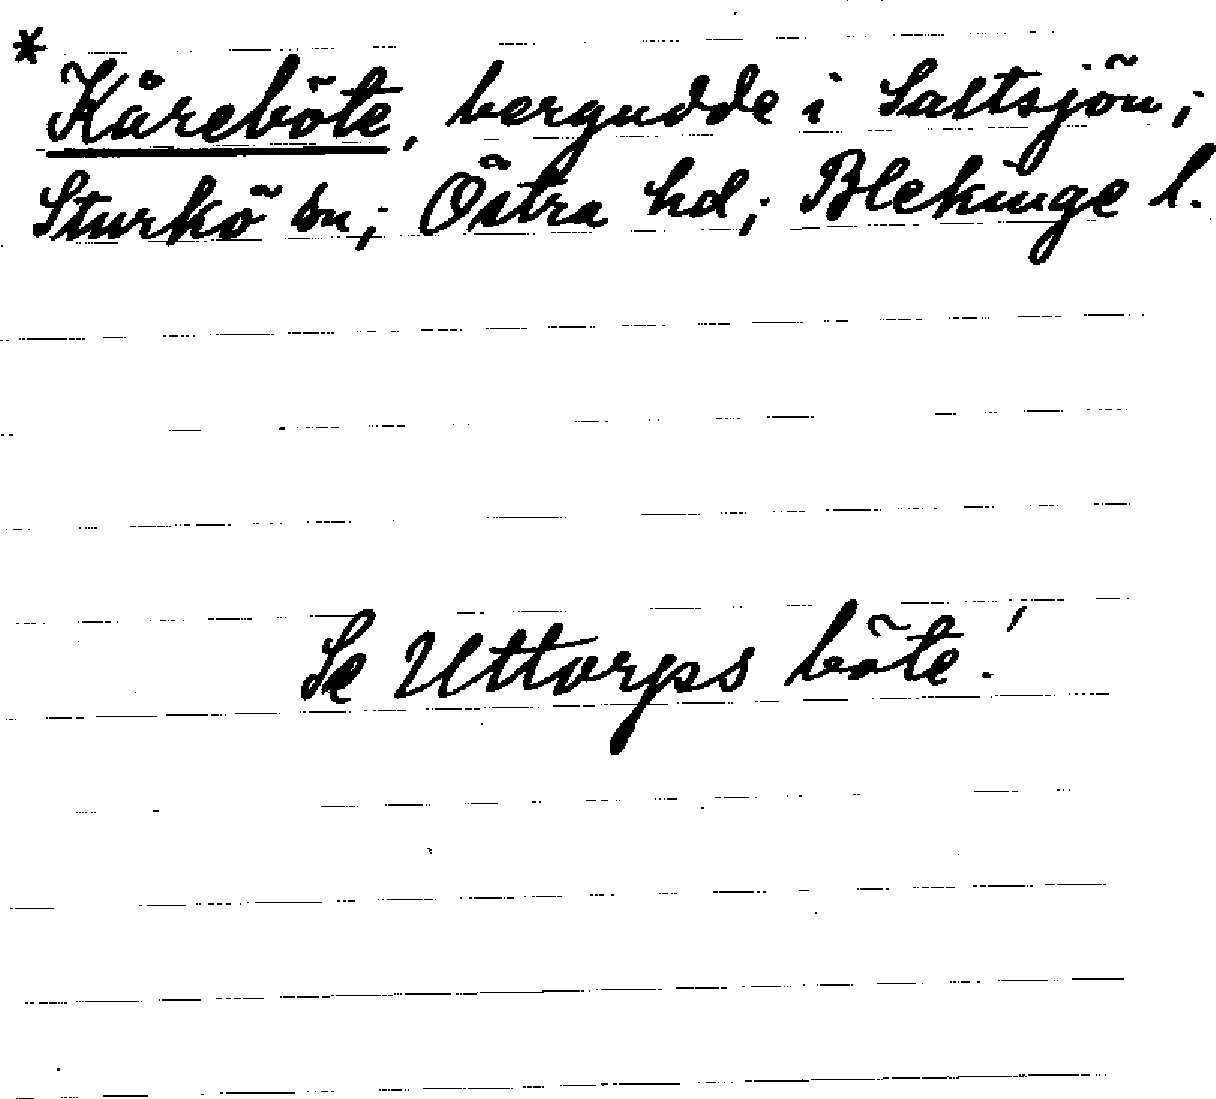 * Kåreböte, bergudde i Saltsjön;
Sturkö sn; Östra hd; Blekinge l.
Se Uttorps böte!